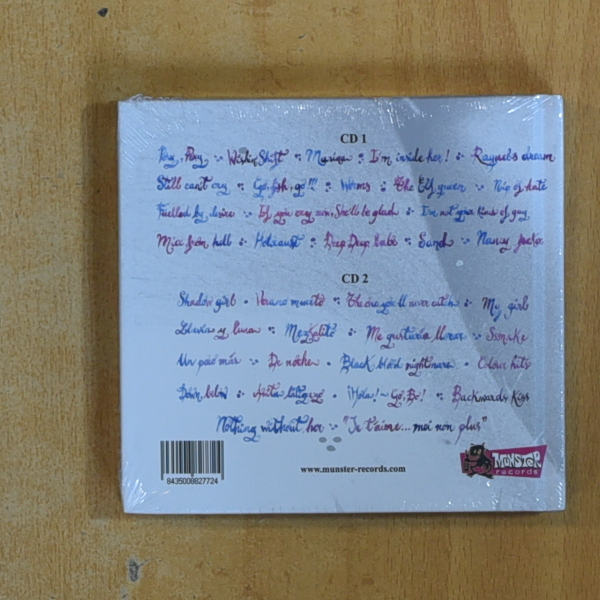 CD 1
Pery, Pery Wishin Shift Musique I'm inside her! Raquel's dream
Still can't cry Go, fish, go!!! Worms The Elf queen Trip of hate
Fuelled by desire If you cry son, She'll be glad I'm not your kind of guy
Mice from hell Holocaust Deep Deep babe Sand Nancy
CD 2
Shadow girl Verano muerto The one you'll never catch My girl
Lluvia y luna Mezkalito Me gustaría llorar Ssnake
Un poco más De noche Black blood nightmare Colour hits
Down below Puta látigo ¡Hola! ~ Go, Bo! Backwards Kiss
Nothing without her "Je t'aime... moi non plus"
8435008827724
www.munster-records.com
MUNSTER
records